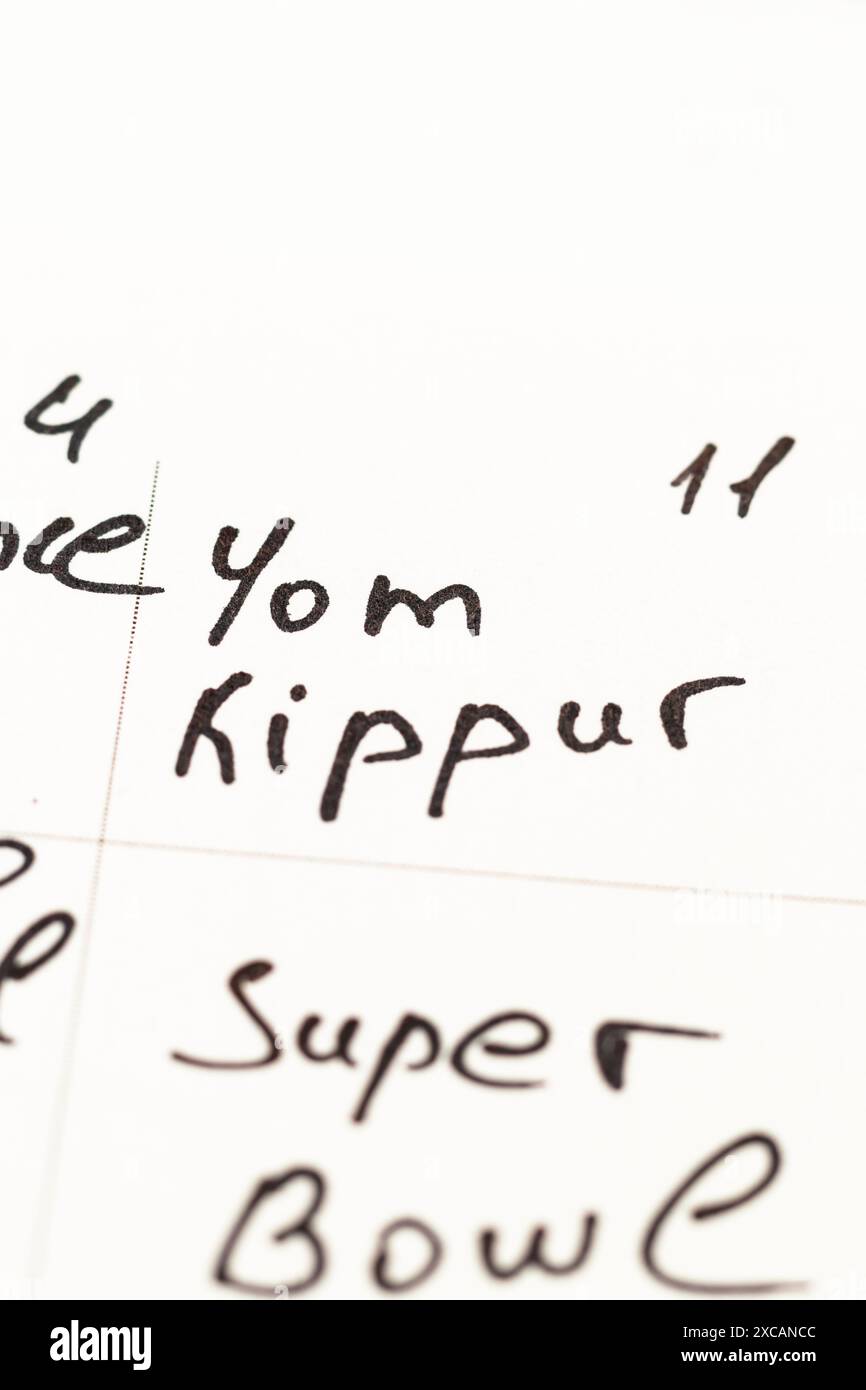 4
11
Yom
Kippur
Super
Bowl
alamy
Image ID: 2XCANCC
www.alamy.com